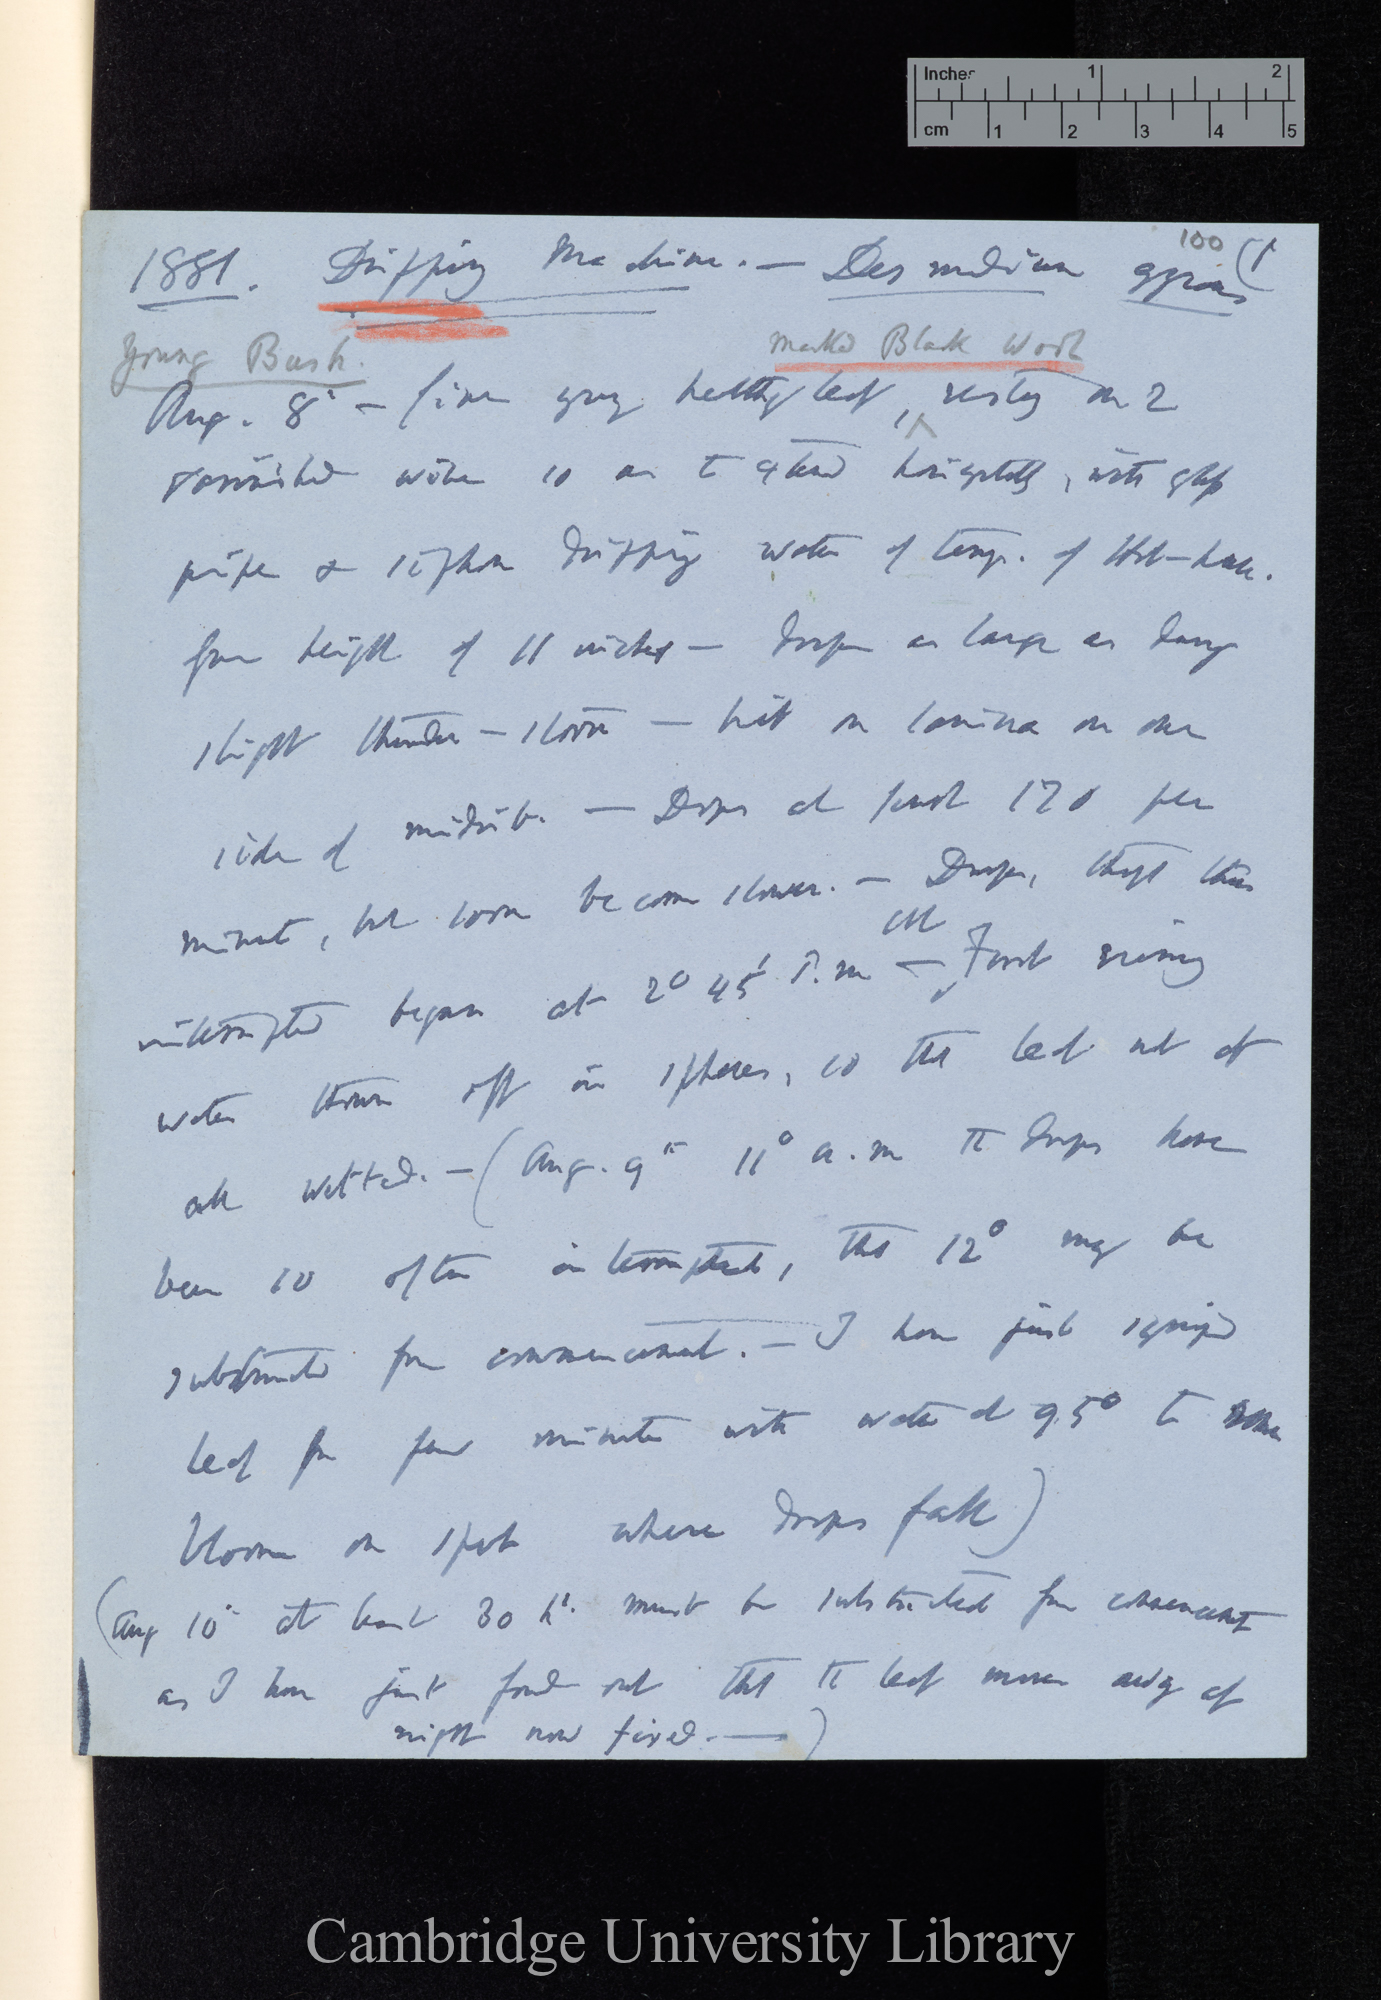 Inches 1 2
cm 1 2 3 4 5
100 (1
1881. Dripping Machine. — Desmodium gyrans
Young Bush. marked Black Wool
Aug. 8th — fine young healthy leaf, ^ resting on 2
varnished wires so as to extend horizontally, with glass
pipe & syphon dripping water of temp. of Hot-house.
from height of 11 inches — drops as large as during
slight thunder-storm — hit on lamina on one
side of midrib. — Drops at first 170 per
minute, but soon become slower. — Drops, though thus
interrupted began at 2° 45' P.m — First
water thrown off in spheres, so that leaf not at
all wetted. — (Aug. 9th 11° a.m the drops have
been so often interrupted, that 12° may be
substracted from commencement. — I have just syringed
leaf for few minutes with water at 95° to remove
bloom on spot where drops fall)
(Aug 10th at least 30 hrs. must be substracted from commencement
as I have just found out that the leaf moves away at
night now fixed. — )
Cambridge University Library